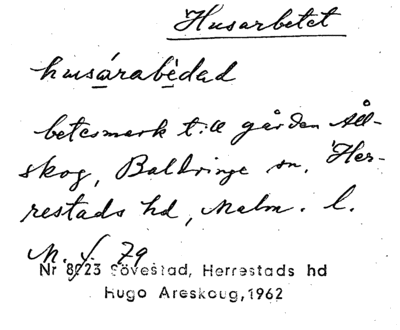 Husarbetet
husárabèdad
betesmark till gården Ål-
skog, Baldringe sn, Her-
restads hd, Malm. l.
M. f. 79
Nr 8023 Sövestad, Herrestads hd
Hugo Areskoug, 1962